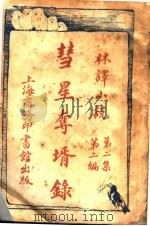 林譯小說
第二集
第二編
彗星奪婿錄
上海商務印書館出版